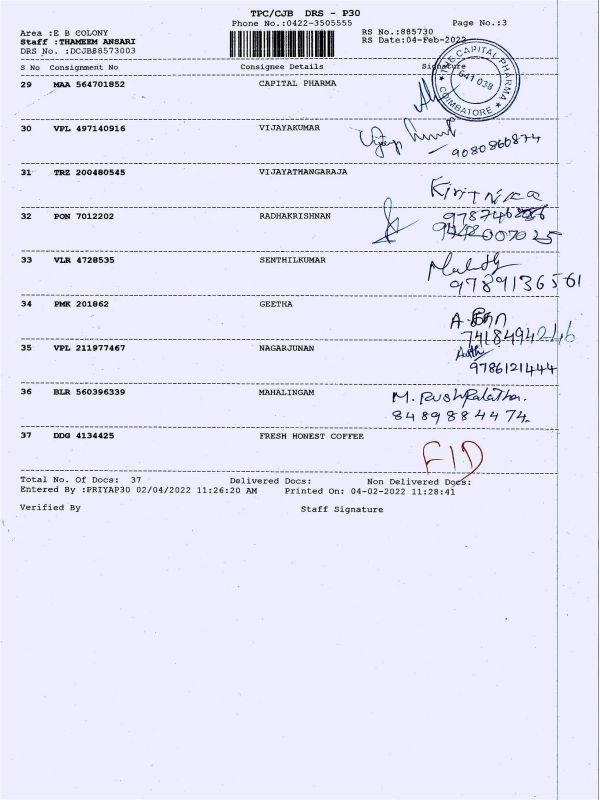 TPC/CJB DRS - P30
Phone No.:0422-3505555 Page No.:3
Area :E B COLONY RS No.:885730
Staff :THAMEEM ANSARI RS Date:04-Feb-2022
DRS No. :DCJB88573003
S No Consignment No Consignee Details Signature
THE CAPITAL PHARMA
641 038
COIMBATORE
29 MAA 564701852 CAPITAL PHARMA
30 VPL 497140916 VIJAYAKUMAR
9080860874
31 TRZ 200480545 VIJAYATHANGARAJA
32 PON 7012202 RADHAKRISHNAN
9442007025
33 VLR 4728535 SENTHILKUMAR
9789136561
34 PMK 201862 GEETHA
7418494246
35 VPL 211977467 NAGARJUNAN
9786121444
36 BLR 560396339 MAHALINGAM M. Pushpalatha.
8489884474.
37 DDG 4134425 FRESH HONEST COFFEE
FID
Total No. Of Docs: 37 Delivered Docs: Non Delivered Docs:
Entered By :PRIYAP30 02/04/2022 11:26:20 AM Printed On: 04-02-2022 11:28:41
Verified By Staff Signature